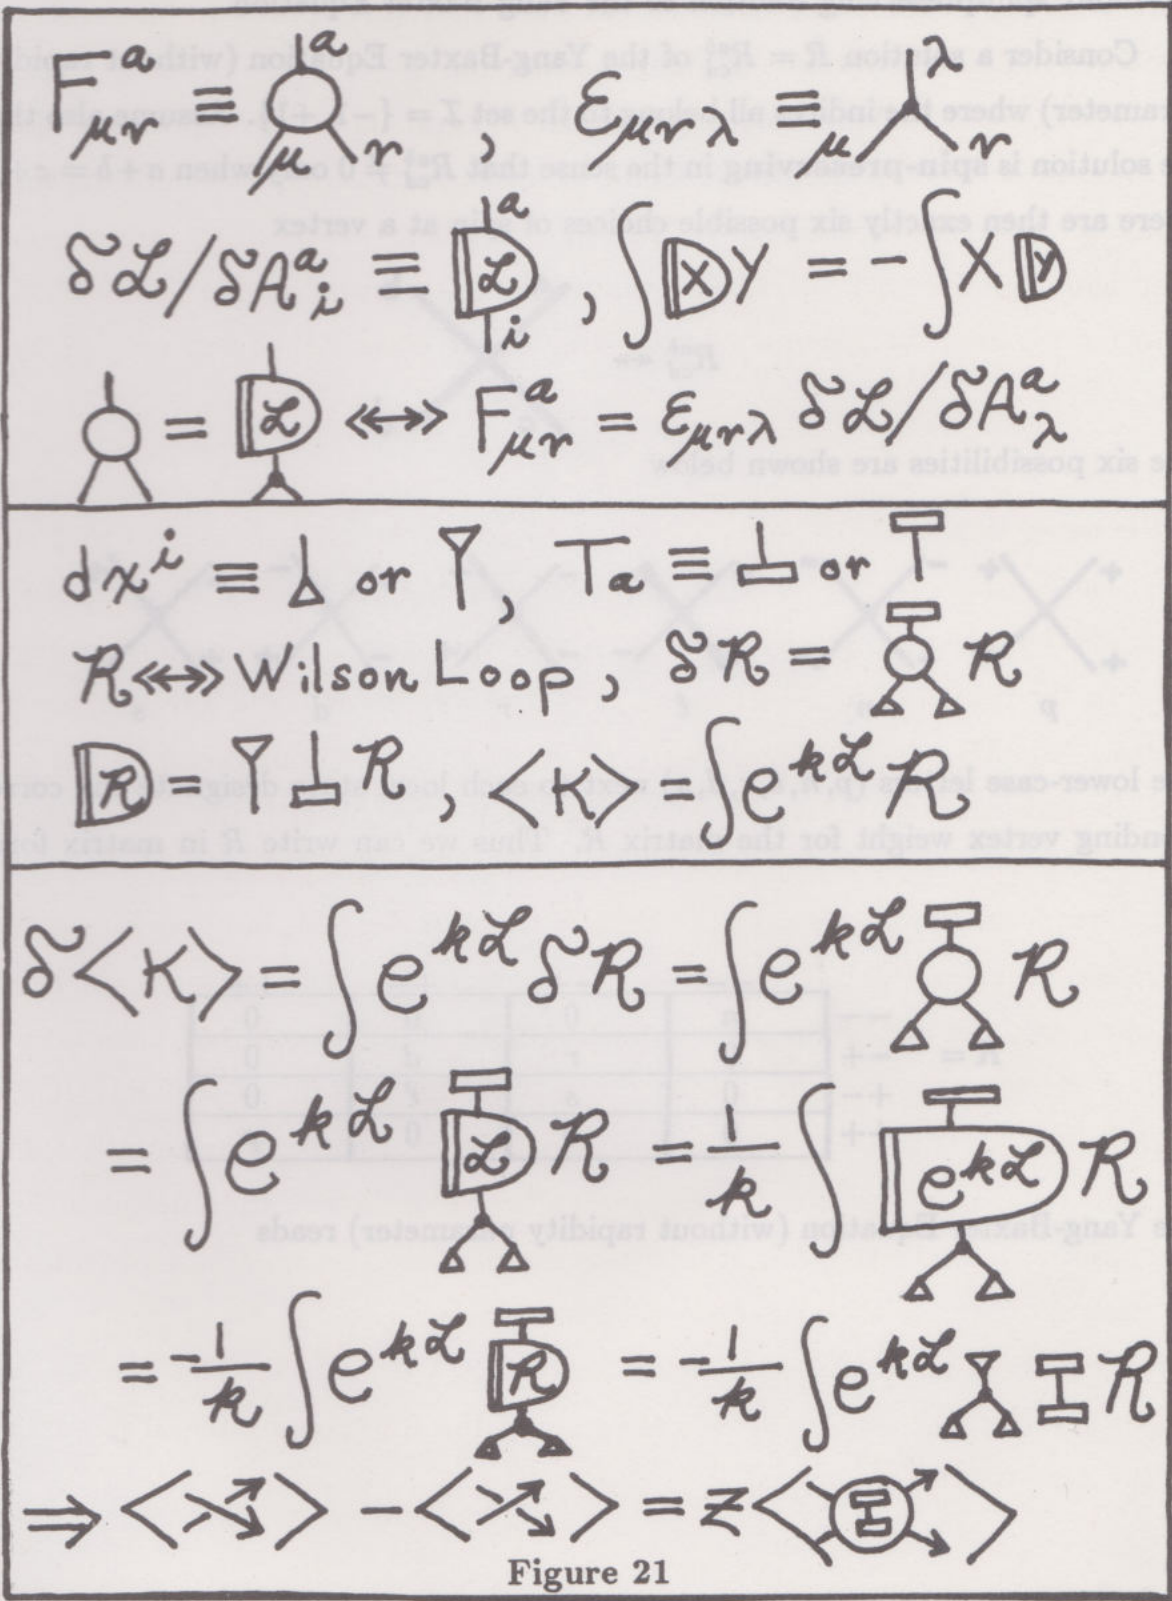 F^a_{μν} ≡ a μ ν , ε_{μνλ} ≡ μ λ ν
δℒ/δA^a_i ≡ a ℒ i , ∫ X Y = - ∫ X Y
= ℒ ⟷ F^a_{μν} = ε_{μνλ} δℒ/δA^a_λ
dx^i ≡ or , T_a ≡ or
R ⟷ Wilson Loop , δR = R
R = R , <K> = ∫ e^{kℒ} R
δ<K> = ∫ e^{kℒ} δR = ∫ e^{kℒ} R
= ∫ e^{kℒ} ℒ R = 1/k ∫ e^{kℒ} R
= -1/k ∫ e^{kℒ} R = -1/k ∫ e^{kℒ} R
⇒ < > - < > = z < >
Figure 21